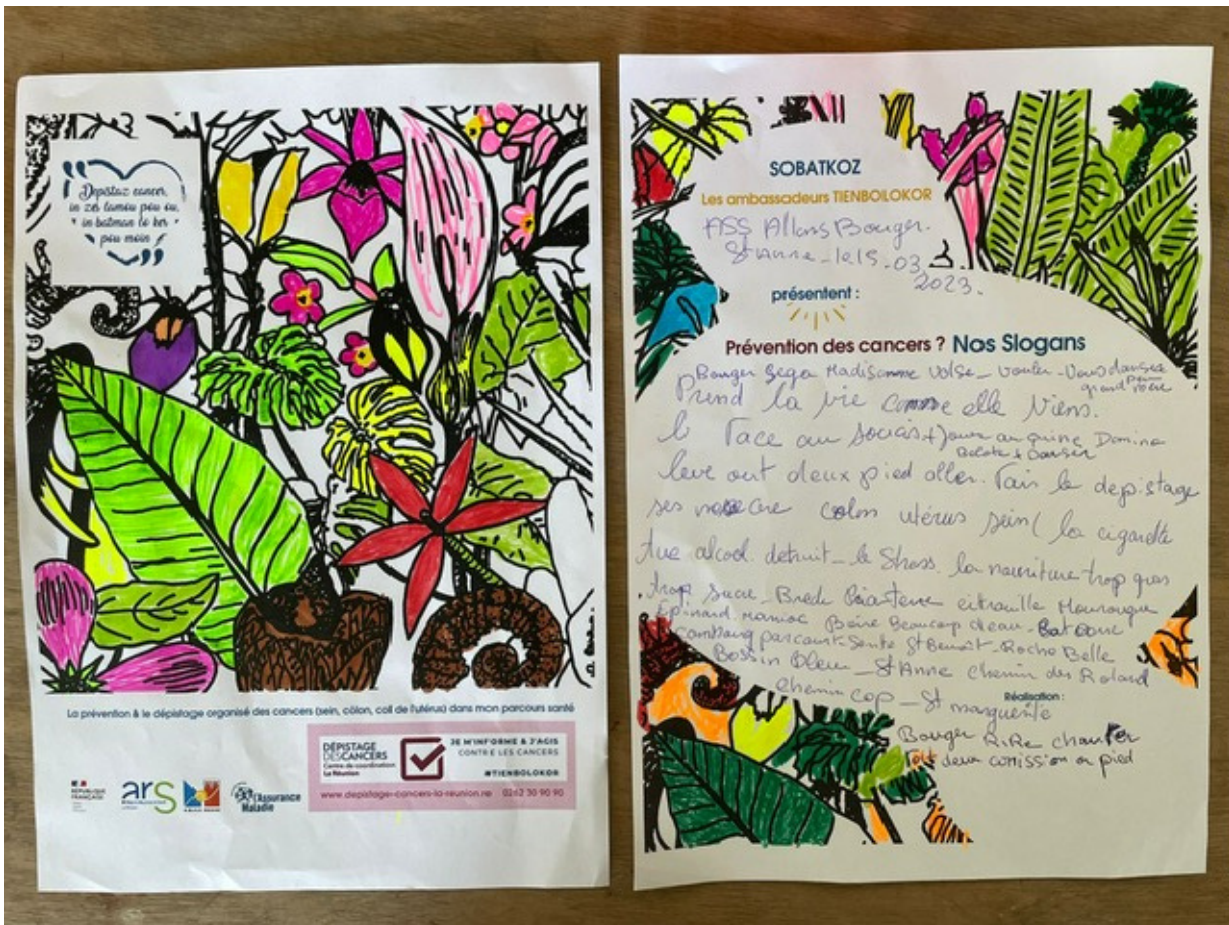 Depistaz cancer,
in zès lamou pou ou,
in batman lo ker
pou moin
La prévention & le dépistage organisé des cancers (sein, côlon, coil de l'utérus) dans mon parcours santé
RÉPUBLIQUE
FRANÇAISE
ars
l'Assurance
Maladie
DÉPISTAGE
DES CANCERS
Centre de coordination
La Réunion
JE M'INFORME & J'AGIS
CONTRE LES CANCERS
#TIENBOLOKOR
www.depistage-cancers-la-reunion.re 0262 30 90 90
SOBATKOZ
Les ambassadeurs TIENBOLOKOR
ASS Allons Bouger.
St Anne - le 15-03
2023.
présentent :
Prévention des cancers ? Nos Slogans
Bouger Sega valse - vouler - vous dansez
grand mère
Prend la vie comme elle viens.
Face au soucis + jouer au Domino
Belote + Danser
leve out deux pied aller. Fais le depistage
colon utérus sein ( la cigarette
tue alcool. detruit - le Stress. la nourriture trop gras
trop sucre - Brede citrouille Mourongue
Epinard. manioc Boire Beaucoup d'eau -
parcourt Sente St Benoit - Roche Belle
Bassin Bleu - St Anne chemin des Roland
chemin cap - St marguerite
Réalisation :
Bouger RiRe chanter
deux comission a pied